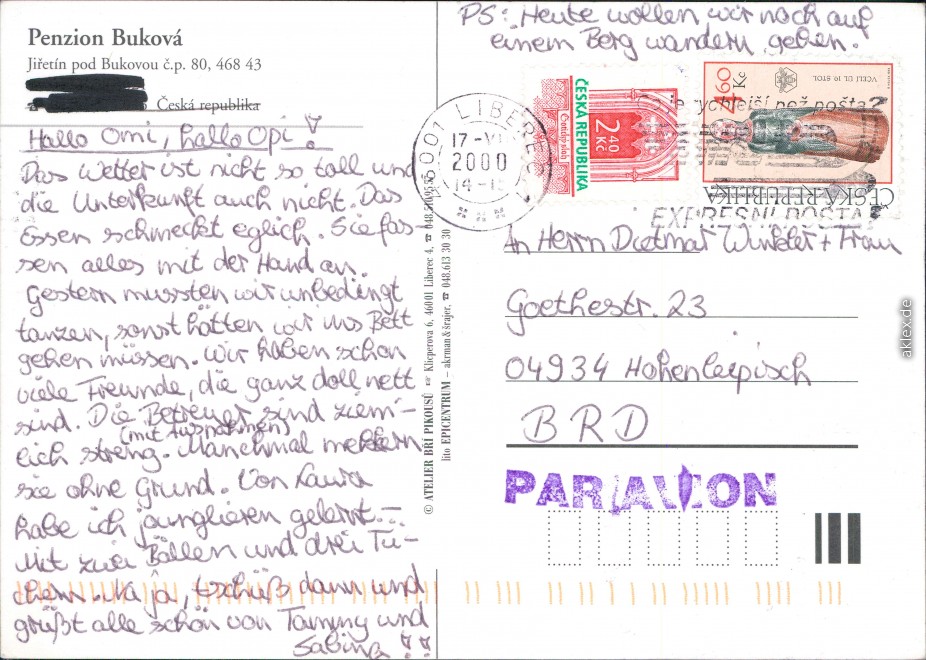 Penzion Buková
Jiřetín pod Bukovou č.p. 80, 468 43
Česká republika
Hallo Omi, hallo Opi!
Das Wetter ist nicht so toll und
die Unterkunft auch nicht. Das
Essen schmeckt eglich. Sie fas-
sen alles mit der Hand an.
Gestern mussten wir unbedingt
tanzen, sonst hätten wir ins Bett
gehen müssen. Wir haben schon
viele Freunde, die ganz doll nett
sind. Die Betreuer sind ziem-
(mit Ausnahmen)
lich streng. Manchmal meckern
sie ohne Grund. Von Laura
habe ich jonglieren gelernt –
Mit zwei Bällen und drei Tü-
chern. Na ja, tschüß dann und
grüßt alle schön von Tammy und
Sabine!!
© ATELIER BŘÍ PIKOUSŮ Klicperova 6, 46001 Liberec 4,
lito EPICENTRUM – akrman & šrajer, ☎ 048.613 30 30
PS: Heute wollen wir noch auf
einem Berg wandern gehen.
LIBEREC
17.-VI.
2000
ČESKÁ REPUBLIKA
2.40
Kčs
VČELÍ ÚL 19. STOL.
4.60
Kč
ČESKÁ REPUBLIKA
je rychlejší než pošta?
EXPRESNÍ POŠTA
An Herrn Dietmar Winkler + Frau
Goethestr. 23
04934 Hohenleipisch
BRD
PAR AVION
aklex.de